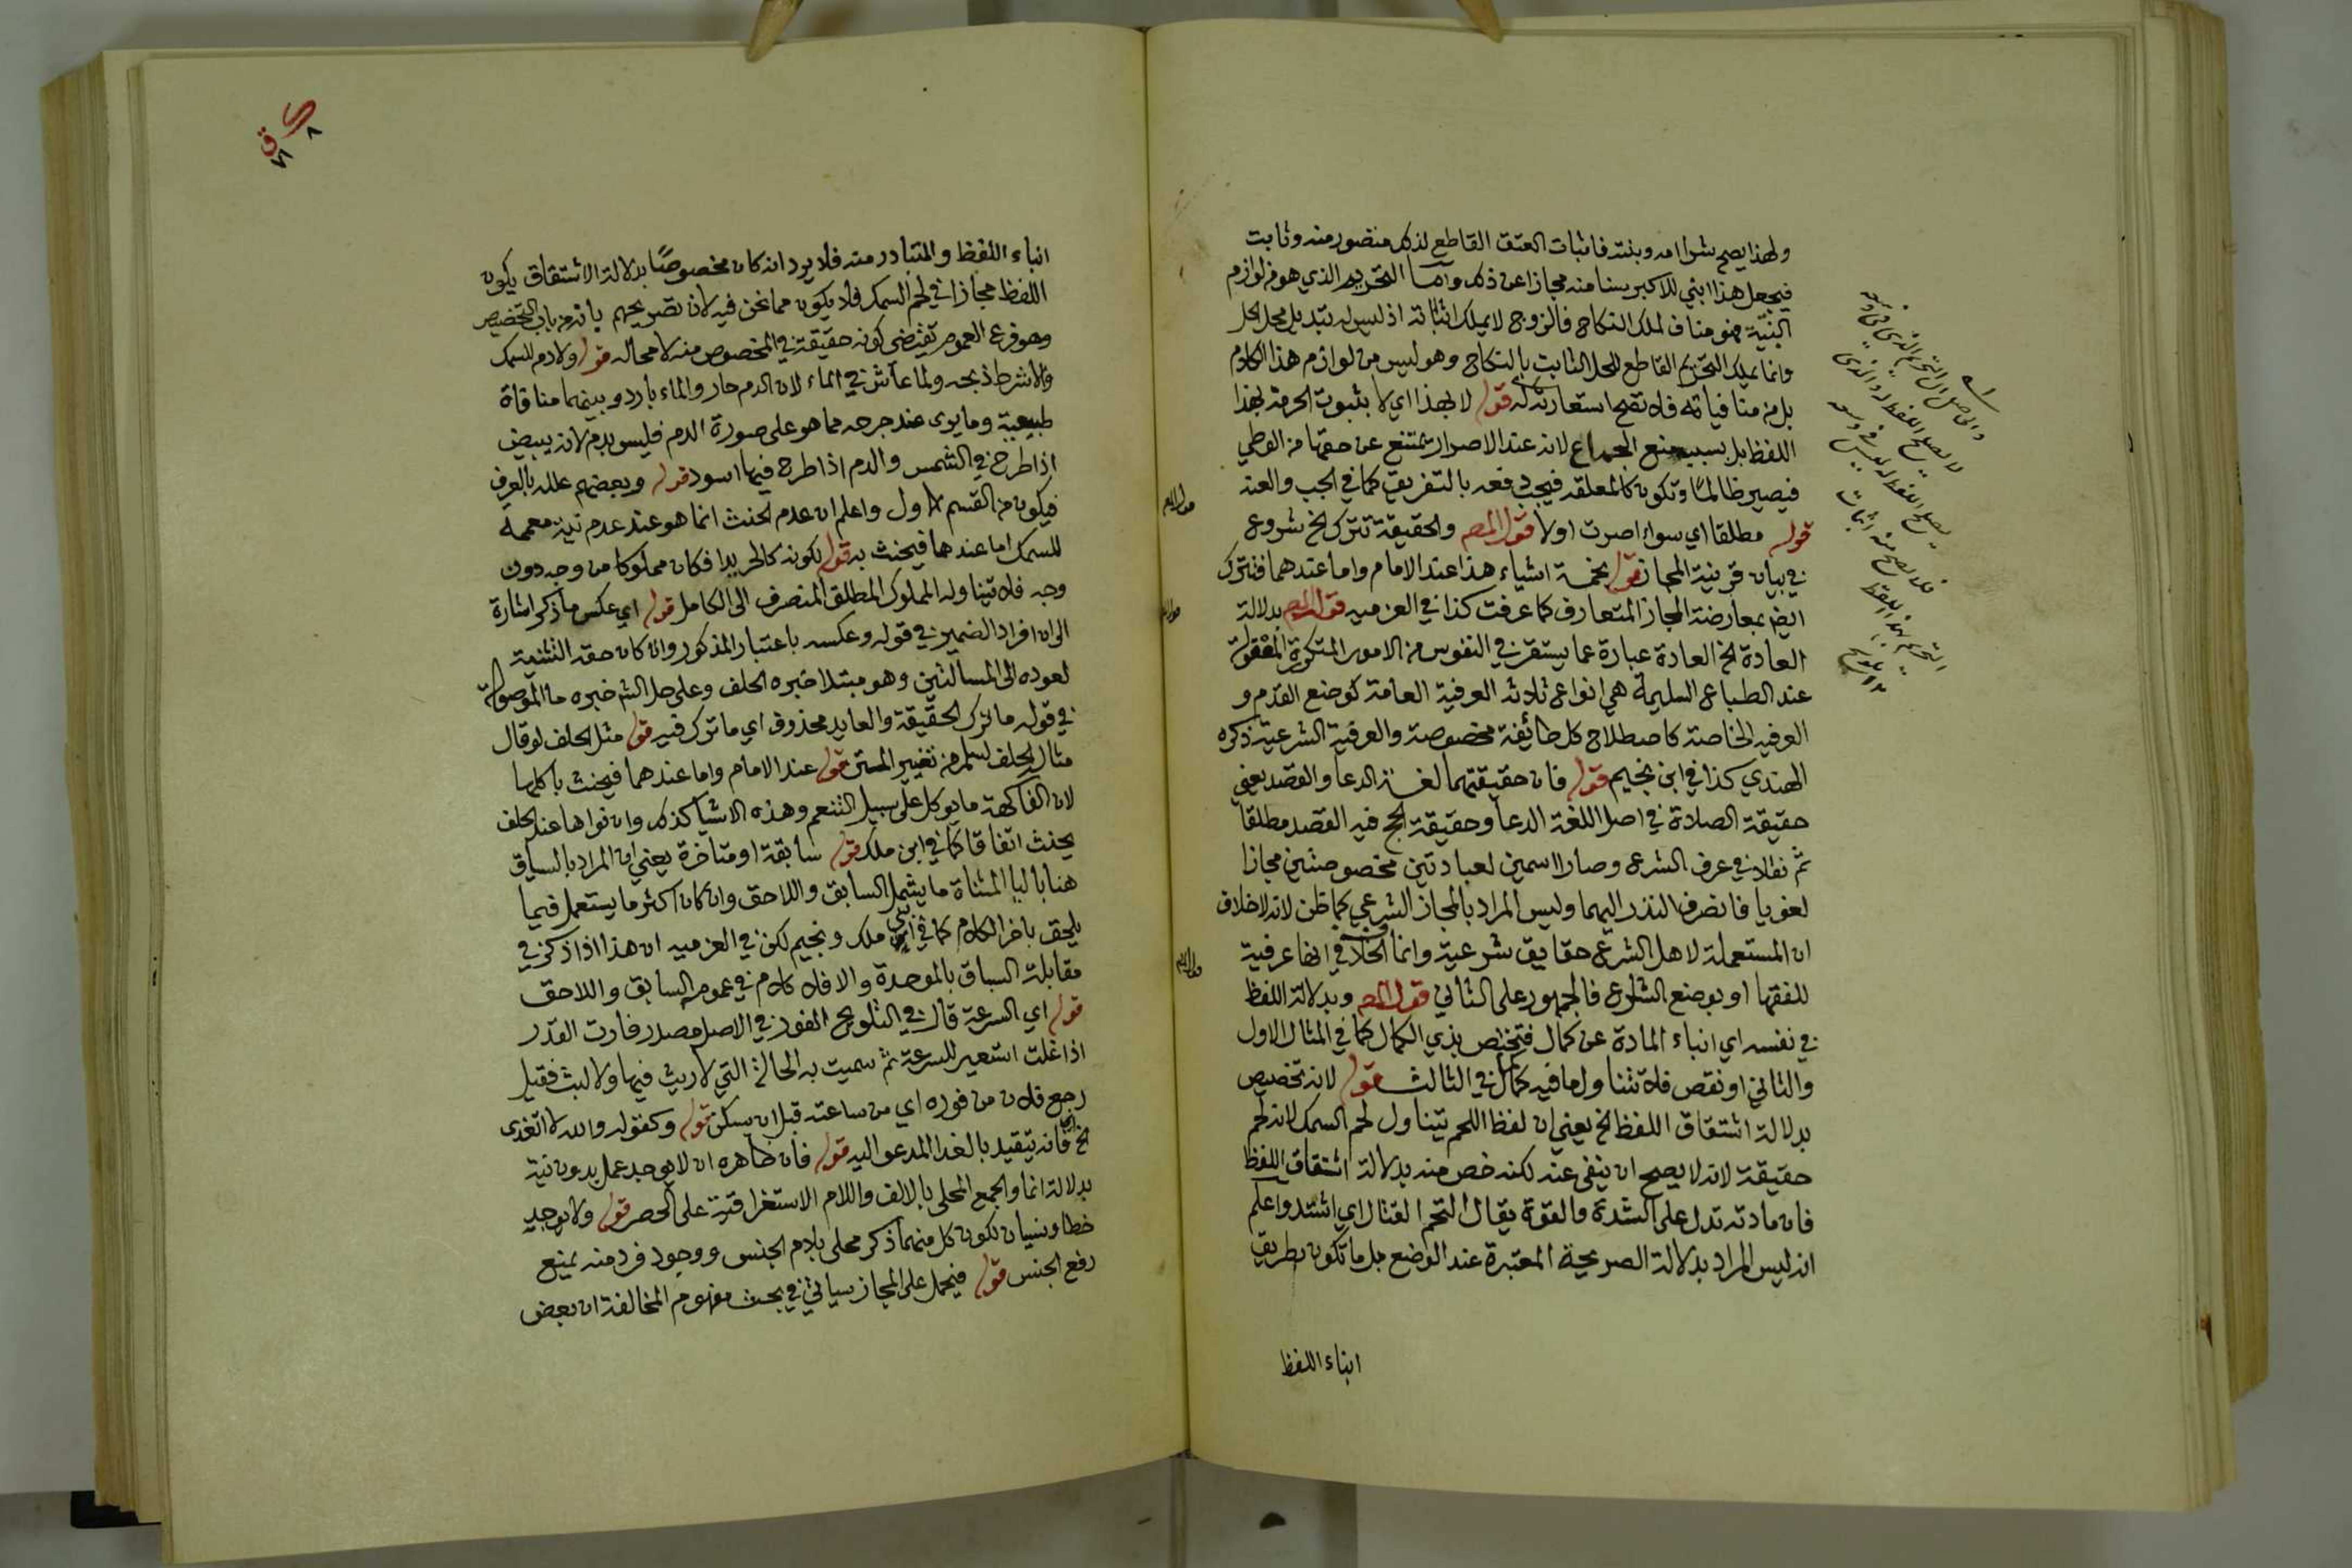 ولهذا يصح شرا امه وبنته فاثبات العتق القاطع لذلك متصور منه وثابت
فيجعل هذا ابني للاكبر سنا منه مجازا عن ذلك واما التحريم الذي هو من لوازم
البنتية فهو مناف لملك النكاح فالزوج لا يملك اثباته اذ ليس له تبديل محل الحل
وانما يملك التحريم القاطع للحل الثابت بالنكاح وهو ليس من لوازم هذا الكلام
بل من منافياته فلا تصح استعارته له قوله لا بهذا اي لا بثبوت الحرمة بهذا
اللفظ بل بسبب منع الجماع لانه عند الاصرار يمتنع عن حقها من الوطي
فيصير ظالما وتكون كالمعلقه فيجب دفعه بالتفريق كما في الجب والعنه
قوله مطلقا اي سواء اصرت اولا قول المص والحقيقة تترك الخ شروع
في بيان قرينة المجاز قوله بخمسة اشياء هذا عند الامام واما عندهما فتترك
ايضا بمعارضة المجاز المتعارف كما عرفت كذا في العزميه قول المص بدلالة
العادة الخ العادة عبارة عما يستقر في النفوس من الامور المتكررة المعقولة
عند الطباع السليمة هي انواع ثلاثه العرفية العامة كوضع القدم و
العرفيه الخاصة كاصطلاح كل طائفة مخصوصة والعرفية الشرعية ذكره
الهندي كذا في ابن نجيم قوله فان حقيقتهما لغة الدعا والقصد يعني
حقيقة الصلاة في اصل اللغة الدعا وحقيقة الحج فيه القصد مطلقا
ثم نقلا في عرف الشرع وصارا اسمين لعبادتين مخصوصتين مجازا
لغويا فانصرف النذر اليهما وليس المراد بالمجاز الشرعي كما ظن لانه لا خلاف
ان المستعملة لاهل الشرع حقايق شرعية وانما الخلاف في انها عرفية
للفقها او بوضع الشارع فالجمهور على الثاني قول المص وبدلالة اللفظ
في نفسه اي انباء المادة عن كمال فتختص بذي الكمال كما في المثال الاول
والثاني او نقص فلا تتناول ما فيه كمال في الثالث قوله لانه تخصيص
بدلالة اشتقاق اللفظ الخ يعني ان لفظ اللحم يتناول لحم السمك لانه لحم
حقيقة لانه لا يصح ان ينفى عنه لكنه خص منه بدلالة اشتقاق اللفظ
فان مادته تدل على الشدة والقوة يقال التحم القتال اي اشتد واعلم
انه ليس المراد بدلالة الصريحة المعتبرة عند الوضع بل ما تكون بطريق
انباء اللفظ
والحاصل ان التحريم الذي في وسعه
لا يصلح اللفظ له والذي
يصلح اللفظ له ليس في وسعه
فلا يصح منه اثبات
التحريم بهذا اللفظ
تلويح
انباء اللفظ والمتبادر منه فلا يرد انه كان مخصوصا بدلالة الاشتقاق يكون
اللفظ مجازا في لحم السمك فلا يكون مما نحن فيه لان تصريحهم بانه من باب التخصيص
وهو فرع العموم تقتضي كونه حقيقة في المخصوص منه لا محاله قوله ولا دم للسمك
والا شرط ذبحه ولما عاش في الماء لان الدم حار والماء بارد وبينهما منافاة
طبيعية وما يرى عند جرحه مما هو على صورة الدم فليس بدم لانه يبيض
اذا طرح في الشمس والدم اذا طرح فيها اسود قوله وبعضهم علله بالعرف
فيكون من القسم الاول واعلم ان عدم الحنث انما هو عند عدم نية معممه
للسمك اما عندها فيحنث به قوله لكونه كالحر يدا فكان مملوكا من وجه دون
وجه فلا تيناوله المملوك المطلق المنصرف الى الكامل قوله اي عكس ما ذكر اشارة
الى ان افراد الضمير في قوله وعكسه باعتبار المذكور وان كان حقه التثنية
لعوده الى المسألتين وهو مبتدا خبره الحلف وعلى حل الش خبره ما الموصولة
في قوله ما ترك الحقيقة والعايد محذوف اي ما ترك فيه قوله مثل الحلف لو قال
مثال الحلف لسلم من تغيير المتن قوله عند الامام واما عندهما فيحنث باكلها
لان الفاكهة ما يوكل على سبيل التنعم وهذه الاشيا كذلك وان نواها عند الحلف
يحنث اتفاقا كما في ابن ملك قوله سابقة او متاخرة يعني ان المراد بالسياق
هنا باليا المثناة ما يشمل السابق واللاحق وان كان اكثر ما يستعمل فيما
يلحق باخر الكلام كما في ابني ملك ونجيم لكن في العزميه ان هذا اذا ذكر في
مقابلة السباق بالموحدة والا فلا كلام في عموم السابق واللاحق
قوله اي السرعة قال في التلويح الفور في الاصل مصدر فارت القدر
اذا غلت استعير للسرعة ثم سميت به الحالة التي لا ريث فيها ولا لبث فقيل
رجع فلان من فوره اي من ساعته قبل ان يسكن قوله وكقوله والله لا اتغدى
الخ فانه يتقيد بالغدا المدعو اليه قوله فان ظاهره ان لا يوجد عمل بدون نية
بدلالة انما والجمع المحلى بالالف واللام الاستغراقية على الحصر قوله ولا يوجد
خطا ونسيان لكون كل منهما ذكر محلى بلام الجنس ووجود فرد منه يمنع
رفع الجنس قوله فيحمل على المجاز سياتي في بحث مفهوم المخالفة ان بعض